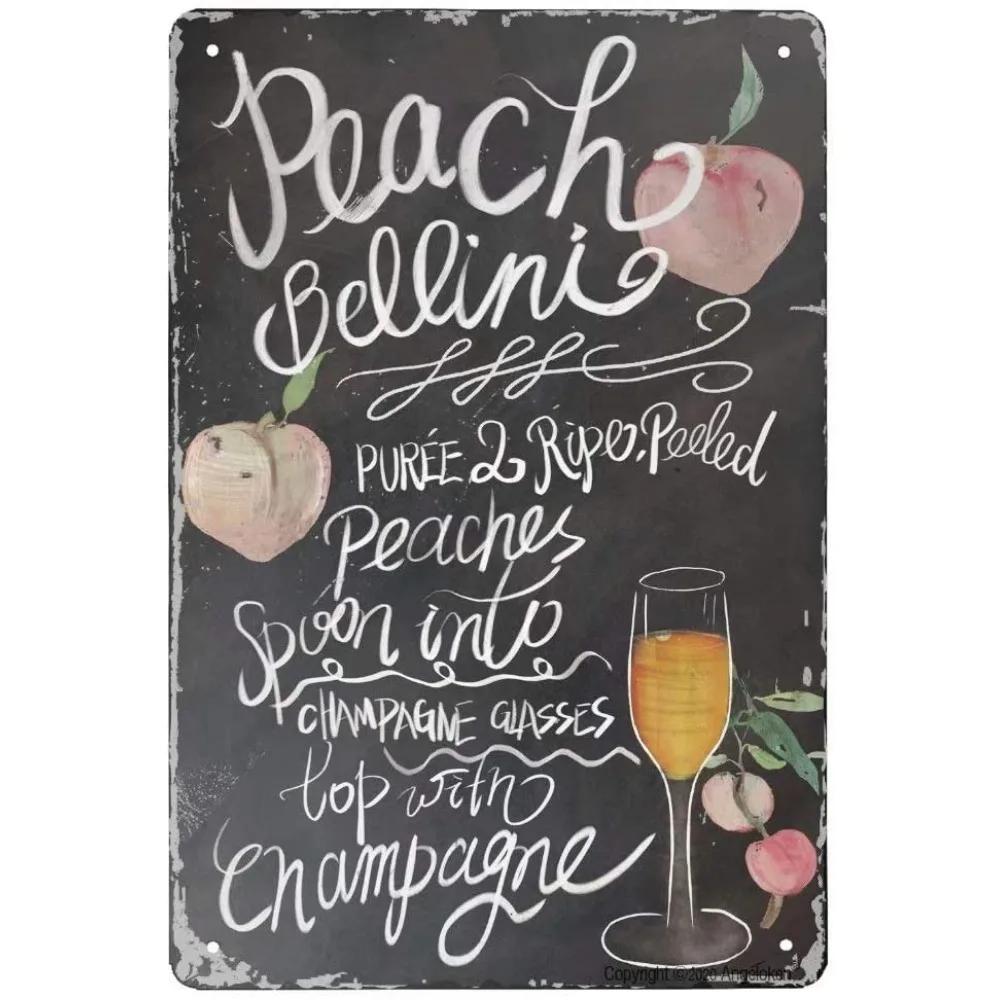 Peach
Bellini
PURÉE 2 Ripe, Peeled
Peaches
Spoon into
CHAMPAGNE GLASSES
top with
Champagne
Copyright ©2020 AngeToken